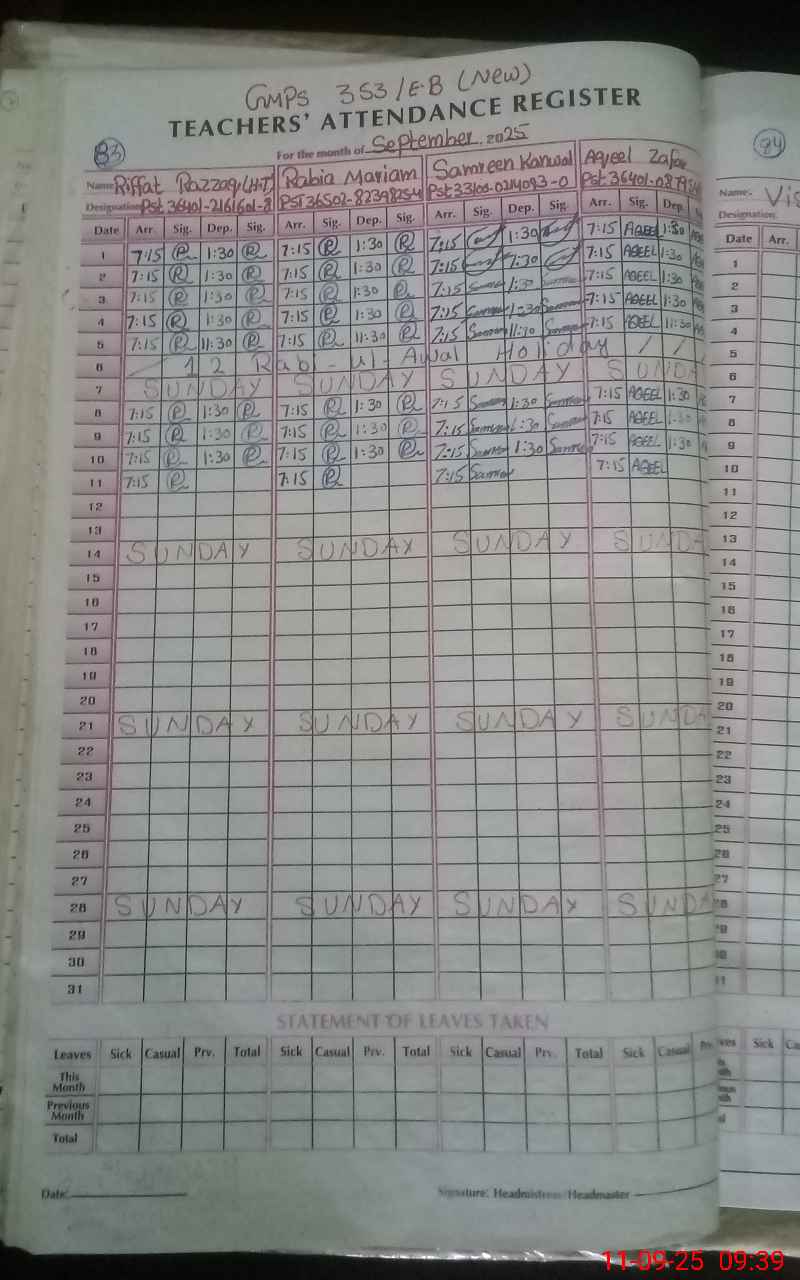 GMPS 353/EB (New)
TEACHERS' ATTENDANCE REGISTER
83
For the month of September, 2025
Name Riffat Razzaq (H.T) Rabia Mariam Samreen Kanwal Aqeel Zafar
Designation Pst 36401-2161601-8 PST 36502-8239825-4 Pst 33100-0214093-0 Pst 36401-08795
Date Arr. Sig. Dep. Sig. Arr. Sig. Dep. Sig. Arr. Sig. Dep. Sig. Arr. Sig. Dep.
1 7:15 R 1:30 R 7:15 R 1:30 R 7:15 1:30 7:15 AQEEL 1:30
2 7:15 R 1:30 R 7:15 R 1:30 R 7:15 1:30 7:15 AQEEL 1:30
3 7:15 R 1:30 R 7:15 R 1:30 R 7:15 Samreen 1:30 Samreen 7:15 AQEEL 1:30
4 7:15 R 1:30 R 7:15 R 1:30 R 7:15 Samreen 1:30 Samreen 7:15 AQEEL 1:30
5 7:15 R 11:30 R 7:15 R 11:30 R 7:15 Samreen 11:30 Samreen 7:15 AQEEL 11:30
6 12 Rabi-ul-Awal Holiday
7 SUNDAY SUNDAY SUNDAY SUNDA
8 7:15 R 1:30 R 7:15 R 1:30 R 7:15 Samreen 1:30 Samreen 7:15 AQEEL 1:30
9 7:15 R 1:30 R 7:15 R 1:30 R 7:15 Samreen 1:30 Samreen 7:15 AQEEL 1:30
10 7:15 R 1:30 R 7:15 R 1:30 R 7:15 Samreen 1:30 Samreen 7:15 AQEEL 1:30
11 7:15 R 7:15 R 7:15 Samreen 7:15 AQEEL
12
13
14 SUNDAY SUNDAY SUNDAY SUNDA
15
16
17
18
19
20
21 SUNDAY SUNDAY SUNDAY SUNDA
22
23
24
25
26
27
28 SUNDAY SUNDAY SUNDAY SUNDA
29
30
31
STATEMENT OF LEAVES TAKEN
Leaves Sick Casual Prv. Total Sick Casual Prv. Total Sick Casual Prv. Total Sick Casual Prv.
This Month
Previous Month
Total
Date: Signature: Headmistress/Headmaster
84
Name: Vis
Designation:
Date Arr.
1
2
3
4
5
6
7
8
9
10
11
12
13
14
15
16
17
18
19
20
21
22
23
24
25
26
27
28
Sick
11-09-25 09:39